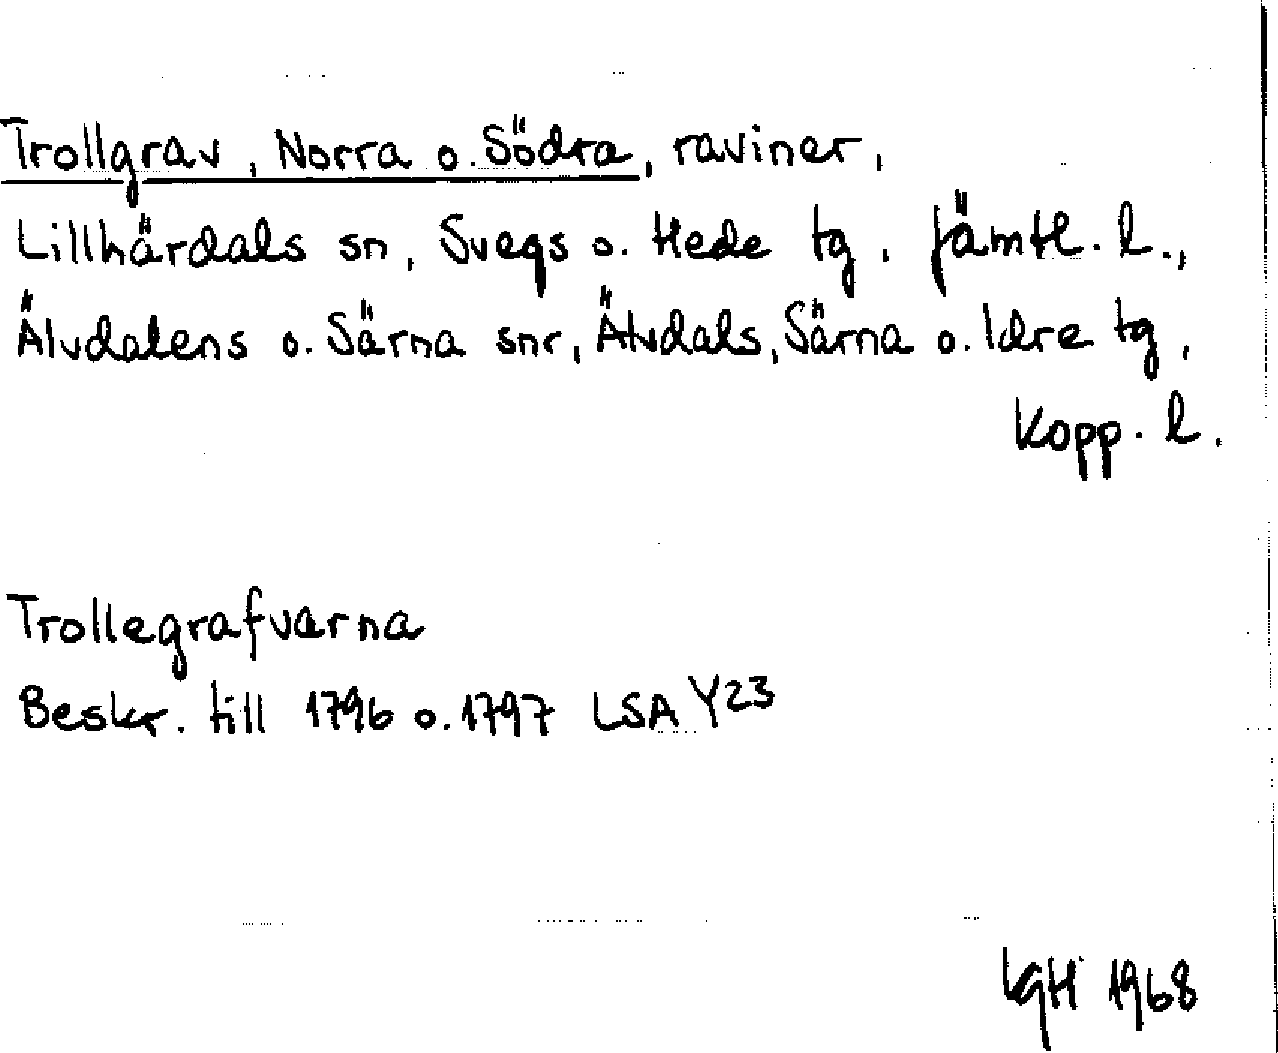 Trollgrav, Norra o. Södra, raviner,
Lillhärdals sn, Svegs o. Hede tg, Jämtl. l.,
Älvdalens o. Särna snr, Älvdals, Särna o. Idre tg,
Kopp. l.
Trollegrafvarna
Beskr. till 1796 o. 1797 LSA Y23
1968